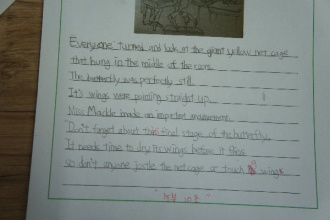 Everyone turned and look at the giant yellow net cage
that hung in the middle of the room.
The butterfly was perfectly still.
It's wings were pointing straight up.
Miss Maddle made an important announcement.
Don't forget about this final stage of the butterfly.
It needs time to dry its wings before it flies
so don't anyone jostle the net cage or touch wings